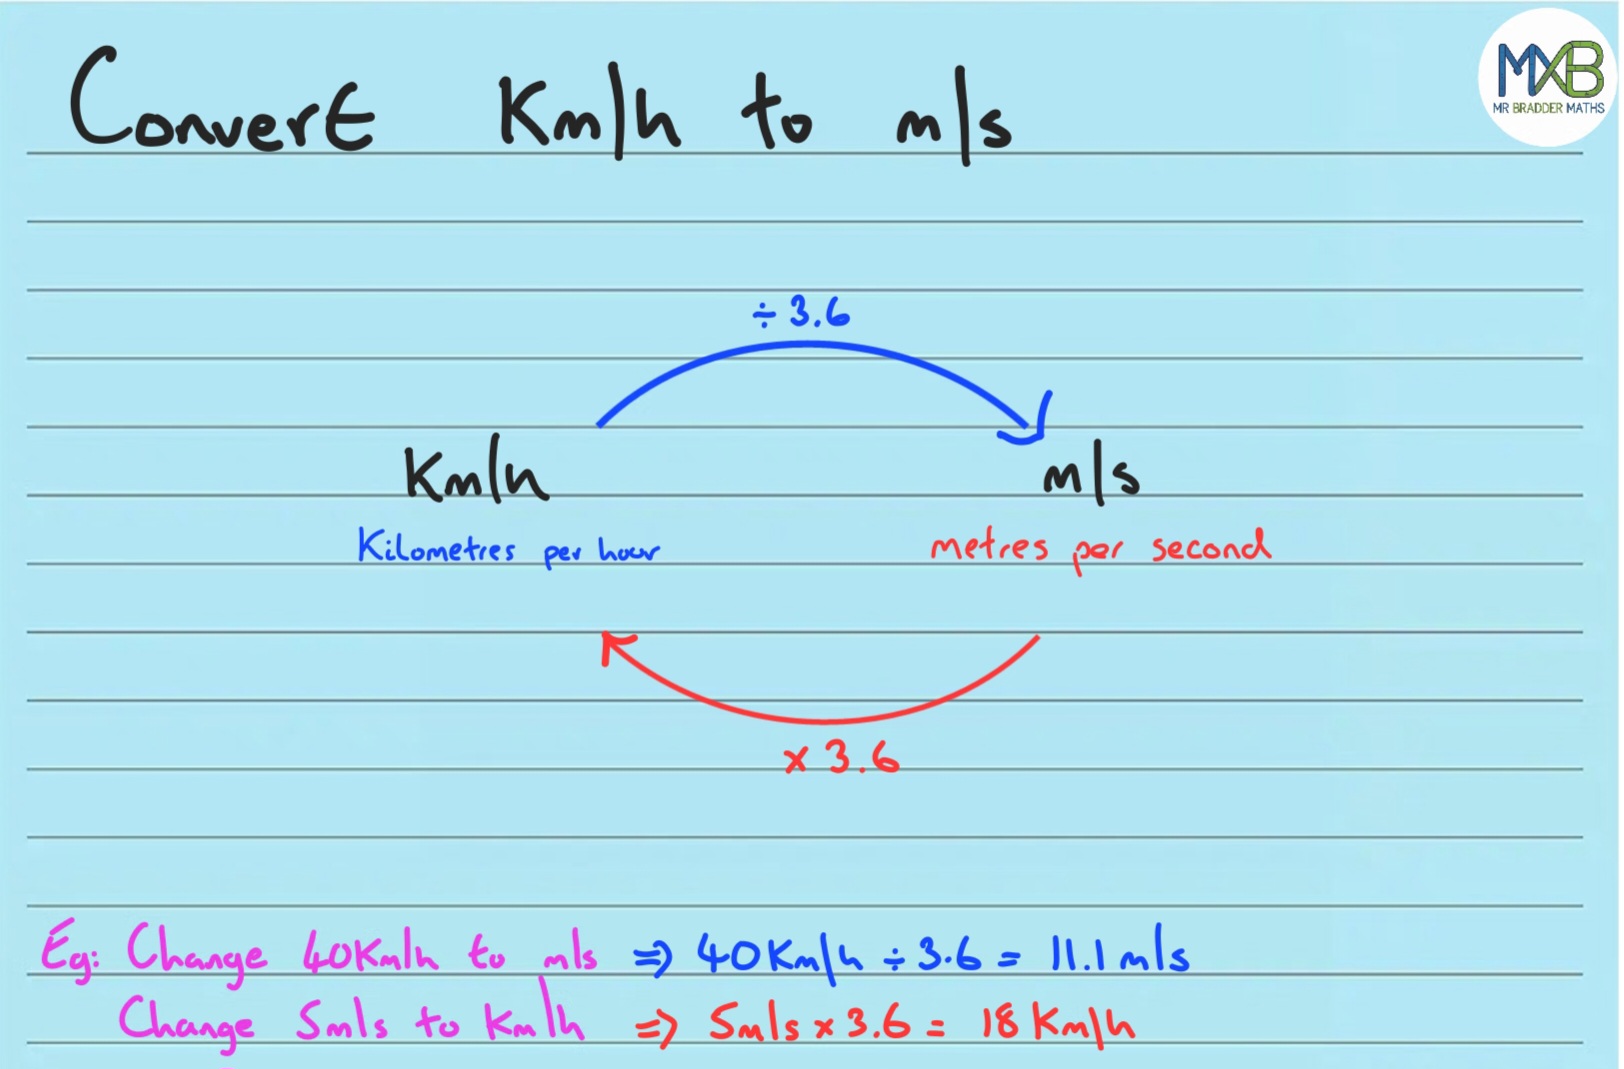 Convert Km/h to m/s
MXB
MR BRADDER MATHS
÷ 3.6
Km/h
m/s
Kilometres per hour
metres per second
x 3.6
Eg: Change 40Km/h to m/s => 40Km/h ÷ 3.6 = 11.1 m/s
Change 5m/s to Km/h => 5m/s x 3.6 = 18 Km/h